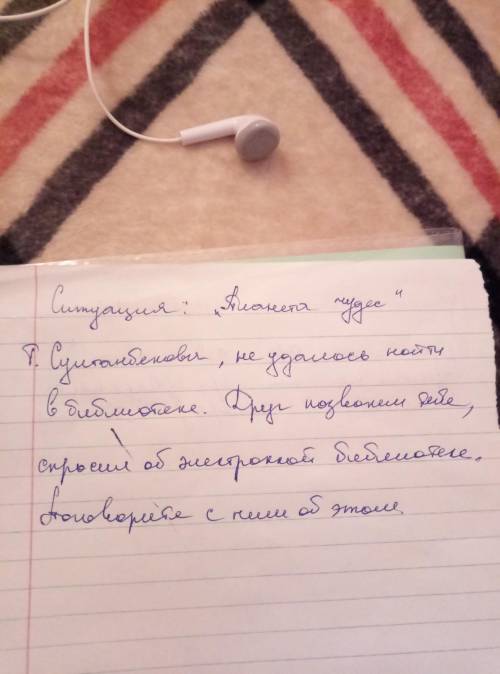 Ситуация: „Планета чудес"
Т. Султанбекова, не удалось найти
в библиотеке. Друг позвонил тебе,
спросил об электронной библиотеке.
Поговорите с ним об этом.